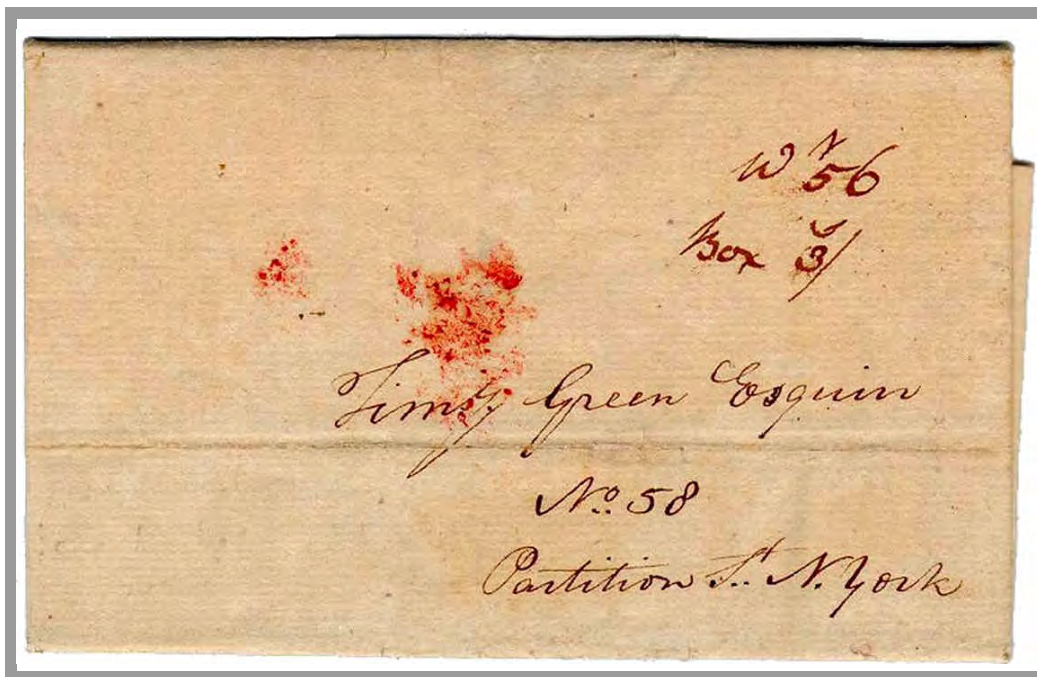 Wt 56
Box 3/
Timy Green Esquire
No. 58
Partition St. N. York